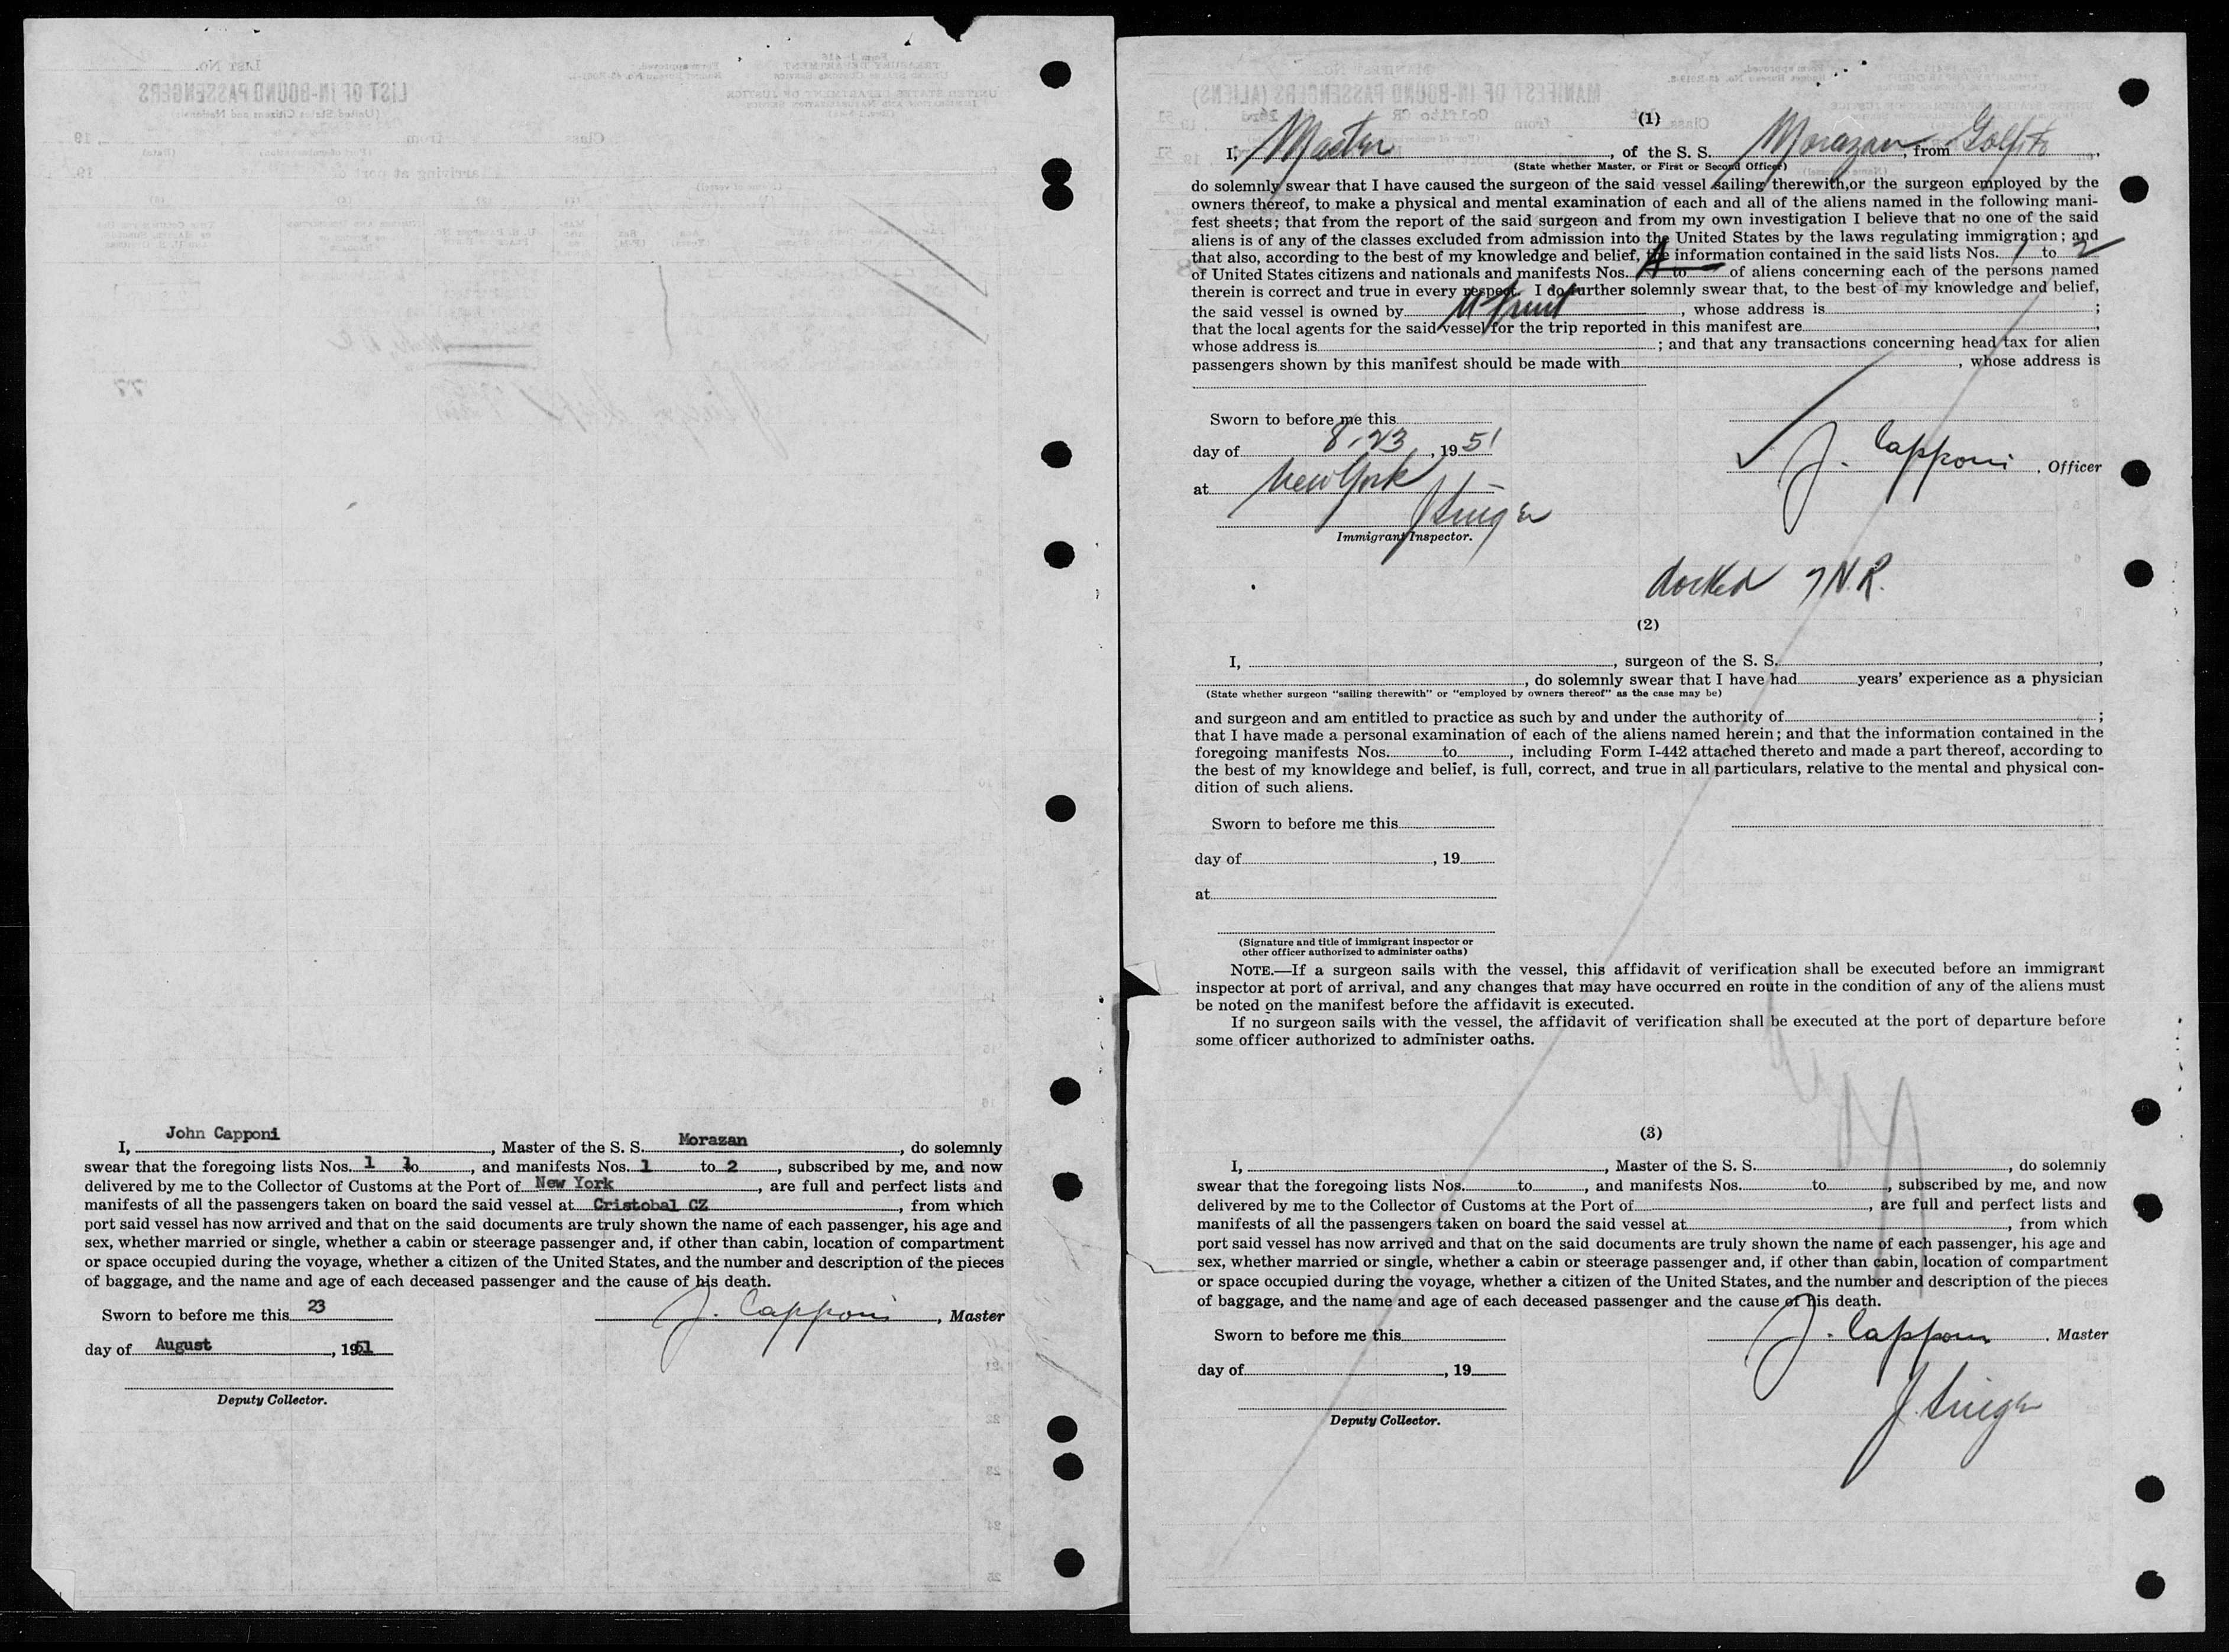 John Capponi Morazan
I, , Master of the S. S. , do solemnly
swear that the foregoing lists Nos. 1 to 1 , and manifests Nos. 1 to 2 , subscribed by me, and now
delivered by me to the Collector of Customs at the Port of New York , are full and perfect lists and
manifests of all the passengers taken on board the said vessel at Cristobal CZ , from which
port said vessel has now arrived and that on the said documents are truly shown the name of each passenger, his age and
sex, whether married or single, whether a cabin or steerage passenger and, if other than cabin, location of compartment
or space occupied during the voyage, whether a citizen of the United States, and the number and description of the pieces
of baggage, and the name and age of each deceased passenger and the cause of his death.
Sworn to before me this 23 J. Capponi , Master
day of August , 1951
Deputy Collector.
(1)
I, Master , of the S. S. Morazan , from Golfito ,
(State whether Master, or First or Second Officer)
do solemnly swear that I have caused the surgeon of the said vessel sailing therewith,or the surgeon employed by the
owners thereof, to make a physical and mental examination of each and all of the aliens named in the following mani-
fest sheets; that from the report of the said surgeon and from my own investigation I believe that no one of the said
aliens is of any of the classes excluded from admission into the United States by the laws regulating immigration; and
that also, according to the best of my knowledge and belief, the information contained in the said lists Nos. 1 to 2
of United States citizens and nationals and manifests Nos. A to — of aliens concerning each of the persons named
therein is correct and true in every respect. I do further solemnly swear that, to the best of my knowledge and belief,
the said vessel is owned by U Fruit , whose address is ;
that the local agents for the said vessel for the trip reported in this manifest are ,
whose address is ; and that any transactions concerning head tax for alien
passengers shown by this manifest should be made with , whose address is
Sworn to before me this
day of 8-23 , 1951
J. Capponi , Officer
at New York
J Singer
Immigrant Inspector.
docked 7 N.R.
(2)
I, , surgeon of the S. S. ,
, do solemnly swear that I have had years' experience as a physician
(State whether surgeon "sailing therewith" or "employed by owners thereof" as the case may be)
and surgeon and am entitled to practice as such by and under the authority of ;
that I have made a personal examination of each of the aliens named herein; and that the information contained in the
foregoing manifests Nos. to , including Form I-442 attached thereto and made a part thereof, according to
the best of my knowldege and belief, is full, correct, and true in all particulars, relative to the mental and physical con-
dition of such aliens.
Sworn to before me this
day of , 19
at
(Signature and title of immigrant inspector or
other officer authorized to administer oaths)
NOTE.—If a surgeon sails with the vessel, this affidavit of verification shall be executed before an immigrant
inspector at port of arrival, and any changes that may have occurred en route in the condition of any of the aliens must
be noted on the manifest before the affidavit is executed.
If no surgeon sails with the vessel, the affidavit of verification shall be executed at the port of departure before
some officer authorized to administer oaths.
(3)
I, , Master of the S. S. , do solemnly
swear that the foregoing lists Nos. to , and manifests Nos. to , subscribed by me, and now
delivered by me to the Collector of Customs at the Port of , are full and perfect lists and
manifests of all the passengers taken on board the said vessel at , from which
port said vessel has now arrived and that on the said documents are truly shown the name of each passenger, his age and
sex, whether married or single, whether a cabin or steerage passenger and, if other than cabin, location of compartment
or space occupied during the voyage, whether a citizen of the United States, and the number and description of the pieces
of baggage, and the name and age of each deceased passenger and the cause of his death.
Sworn to before me this J. Capponi , Master
day of , 19
J. Singer
Deputy Collector.